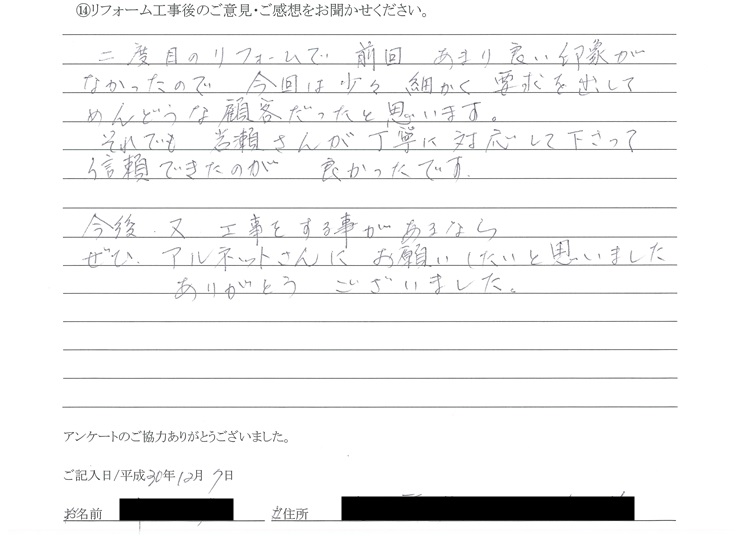 ⑭リフォーム工事後のご意見・ご感想をお聞かせください。
二度目のリフォームで 前回 あまり良い印象が
なかったので 今回は少々 細かく 要求を出して
めんどうな顧客だったと思います。
それでも 岩瀬さんが丁寧に対応して下さって
信頼できたのが 良かったです.
今後.又 工事をする事があるなら
ぜひ.アルネットさんに お願いしたいと思いました
ありがとう ございました。
アンケートのご協力ありがとうございました。
ご記入日/平成30年12月9日
お名前 ご住所